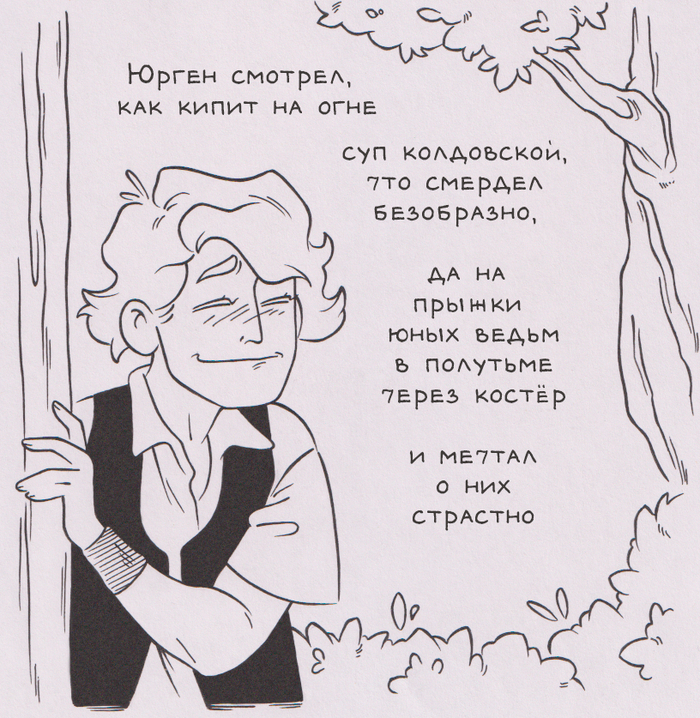 Юрген смотрел,
как кипит на огне
суп колдовской,
что смердел
безобразно,
да на
прыжки
юных ведьм
в полутьме
через костёр
и мечтал
о них
страстно